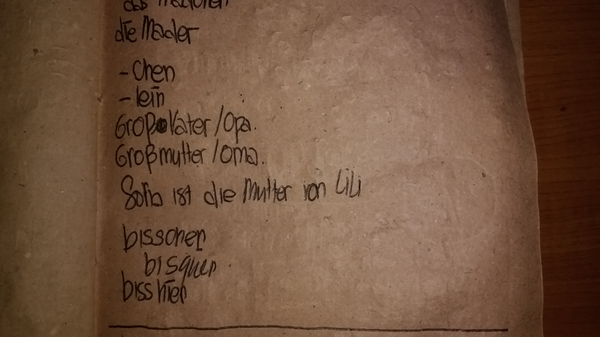 das Mädchen
die Mader
- Chen
- lein
Großvater/Opa.
Großmutter/Oma.
Sofia ist die Mutter von Lili
bisschen
bisquer
bisshier